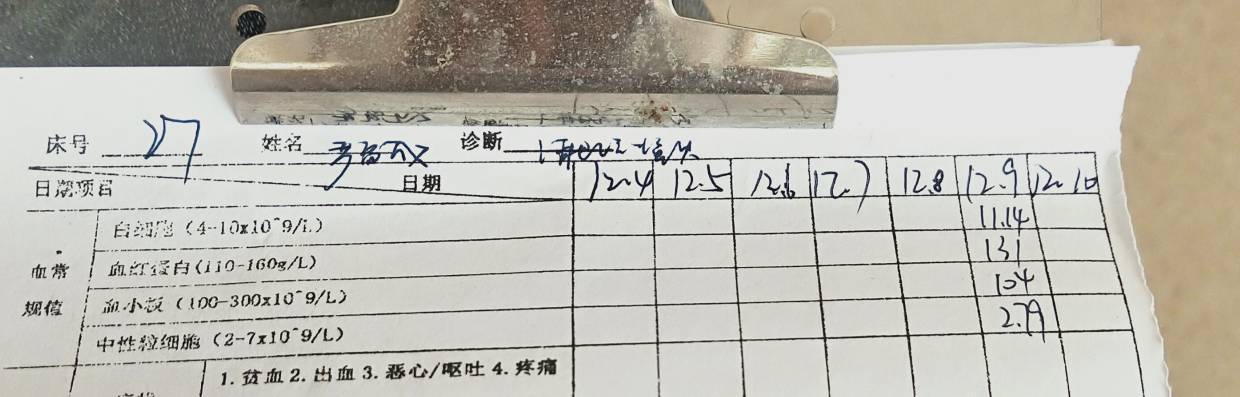 床号 27 姓名 诊断
日期项目 日期 12.4 12.5 12.6 12.7 12.8 12.9 12.10
白细胞（4-10x10^9/L） 11.14
血常规值 血红蛋白(110-160g/L) 131
血小板（100-300x10^9/L） 104
中性粒细胞（2-7x10^9/L） 2.79
1.贫血2.出血3.恶心/呕吐4.疼痛